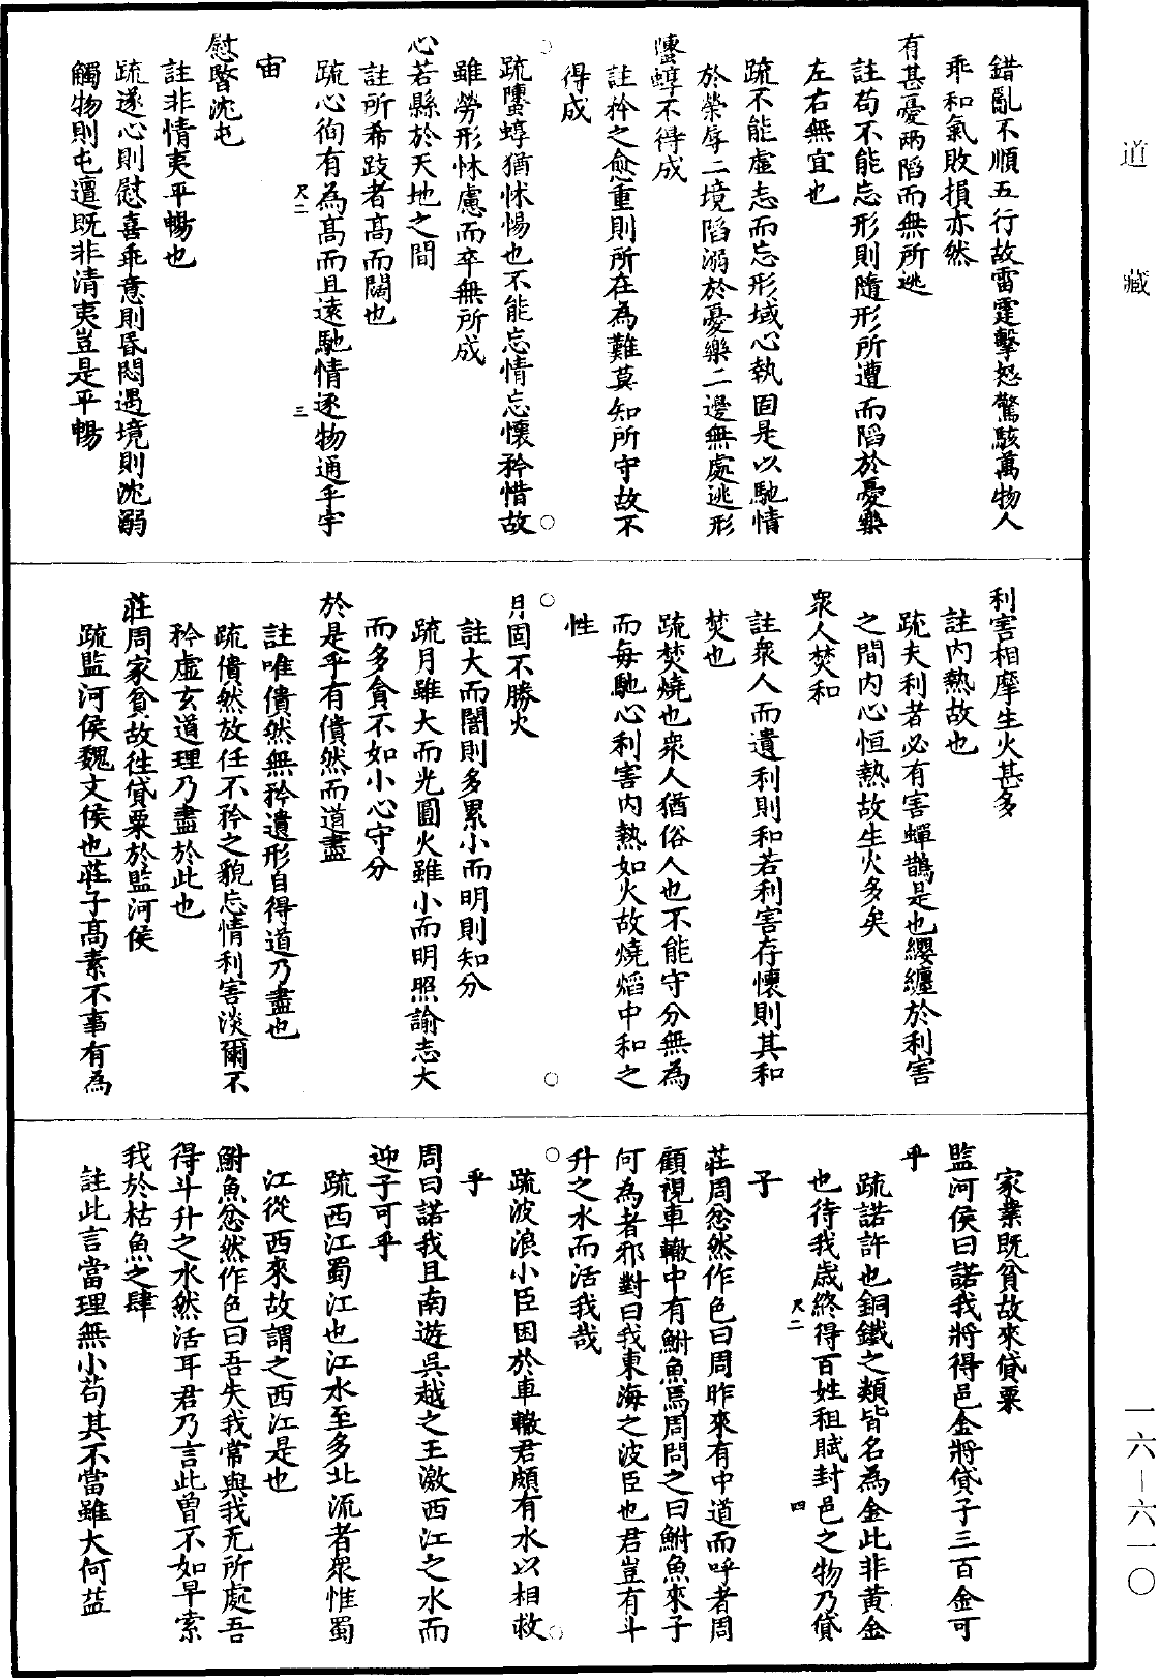 道藏
錯亂不順五行故雷霆擊怒驚駭萬物人
乖和氣敗損亦然
有甚憂兩陷而無所逃
註苟不能忘形則隨形所遭而陷於憂樂
左右無宜也
疏不能虛志而忘形域心執固是以馳情
於榮辱二境陷溺於憂樂二邊無處逃形
䗥蜳不得成
註矜之愈重則所在為難莫知所守故不
得成
疏䗥蜳猶怵惕也不能忘情忘懷矜惜故
雖勞形怵慮而卒無所成
心若縣於天地之間
註所希跂者高而闊也
疏心徇有為高而且遠馳情逐物通乎宇
尺二 三
宙
慰暋沈屯
註非情夷平暢也
疏遂心則慰喜乖意則昏悶遇境則沈溺
觸物則屯邅既非清夷豈是平暢
利害相摩生火甚多
註內熱故也
疏夫利者必有害蟬鵲是也纓纏於利害
之間內心恒熱故生火多矣
衆人焚和
註衆人而遺利則和若利害存懷則其和
焚也
疏焚燒也衆人猶俗人也不能守分無為
而每馳心利害內熱如火故燒焰中和之
性
月固不勝火
註大而闇則多累小而明則知分
疏月雖大而光圓火雖小而明照諭志大
而多貪不如小心守分
於是乎有僓然而道盡
註唯僓然無矜遺形自得道乃盡也
疏僓然放任不矜之貌忘情利害淡爾不
矜虛玄道理乃盡於此也
莊周家貧故徃貸粟於監河侯
疏監河侯魏文侯也莊子高素不事有為
家業既貧故來貸粟
監河侯曰諾我將得邑金將貸子三百金可
乎
疏諾許也銅鐵之類皆名為金此非黃金
也待我歲終得百姓租賦封邑之物乃貸
尺二 四
子
莊周忿然作色曰周昨來有中道而呼者周
顧視車轍中有鮒魚焉周問之曰鮒魚來子
何為者邪對曰我東海之波臣也君豈有斗
升之水而活我哉
疏波浪小臣困於車轍君頗有水以相救
乎
周曰諾我且南遊吳越之王激西江之水而
迎子可乎
疏西江蜀江也江水至多北流者衆惟蜀
江從西來故謂之西江是也
鮒魚忿然作色曰吾失我常與我无所處吾
得斗升之水然活耳君乃言此曾不如早索
我於枯魚之肆
註此言當理無小苟其不當雖大何益
一六－六一〇